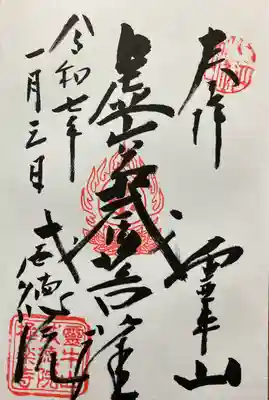 奉拝
霊牛山
虚空蔵菩薩
威徳院
令和七年
一月三日